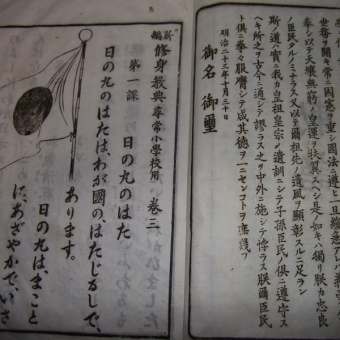 世務ヲ開キ常ニ國憲ヲ重シ國法ニ遵ヒ一旦緩急
奉シ以テ天壤無窮ノ皇運ヲ扶翼スヘシ是ノ如キハ獨リ朕カ忠良
ノ臣民タルノミナラス又以テ爾祖先ノ遺風ヲ顯彰スルニ足ラン
斯ノ道ハ實ニ我カ皇祖皇宗ノ遺訓ニシテ子孫臣民ノ倶ニ遵守ス
ヘキ所之ヲ古今ニ通シテ謬ラス之ヲ中外ニ施シテ悖ラス朕爾臣民
ト倶ニ拳々服膺シテ咸其德ヲ一ニセンコトヲ庶幾フ
明治二十三年十月三十日
御名 御璽
新編 修身教典 尋常小學校用 卷三
第一課 日の丸のはた
日の丸のはたは、わが國の、はたじるしで、
あります。
日の丸は、まこと
に、あざやかで、いさ